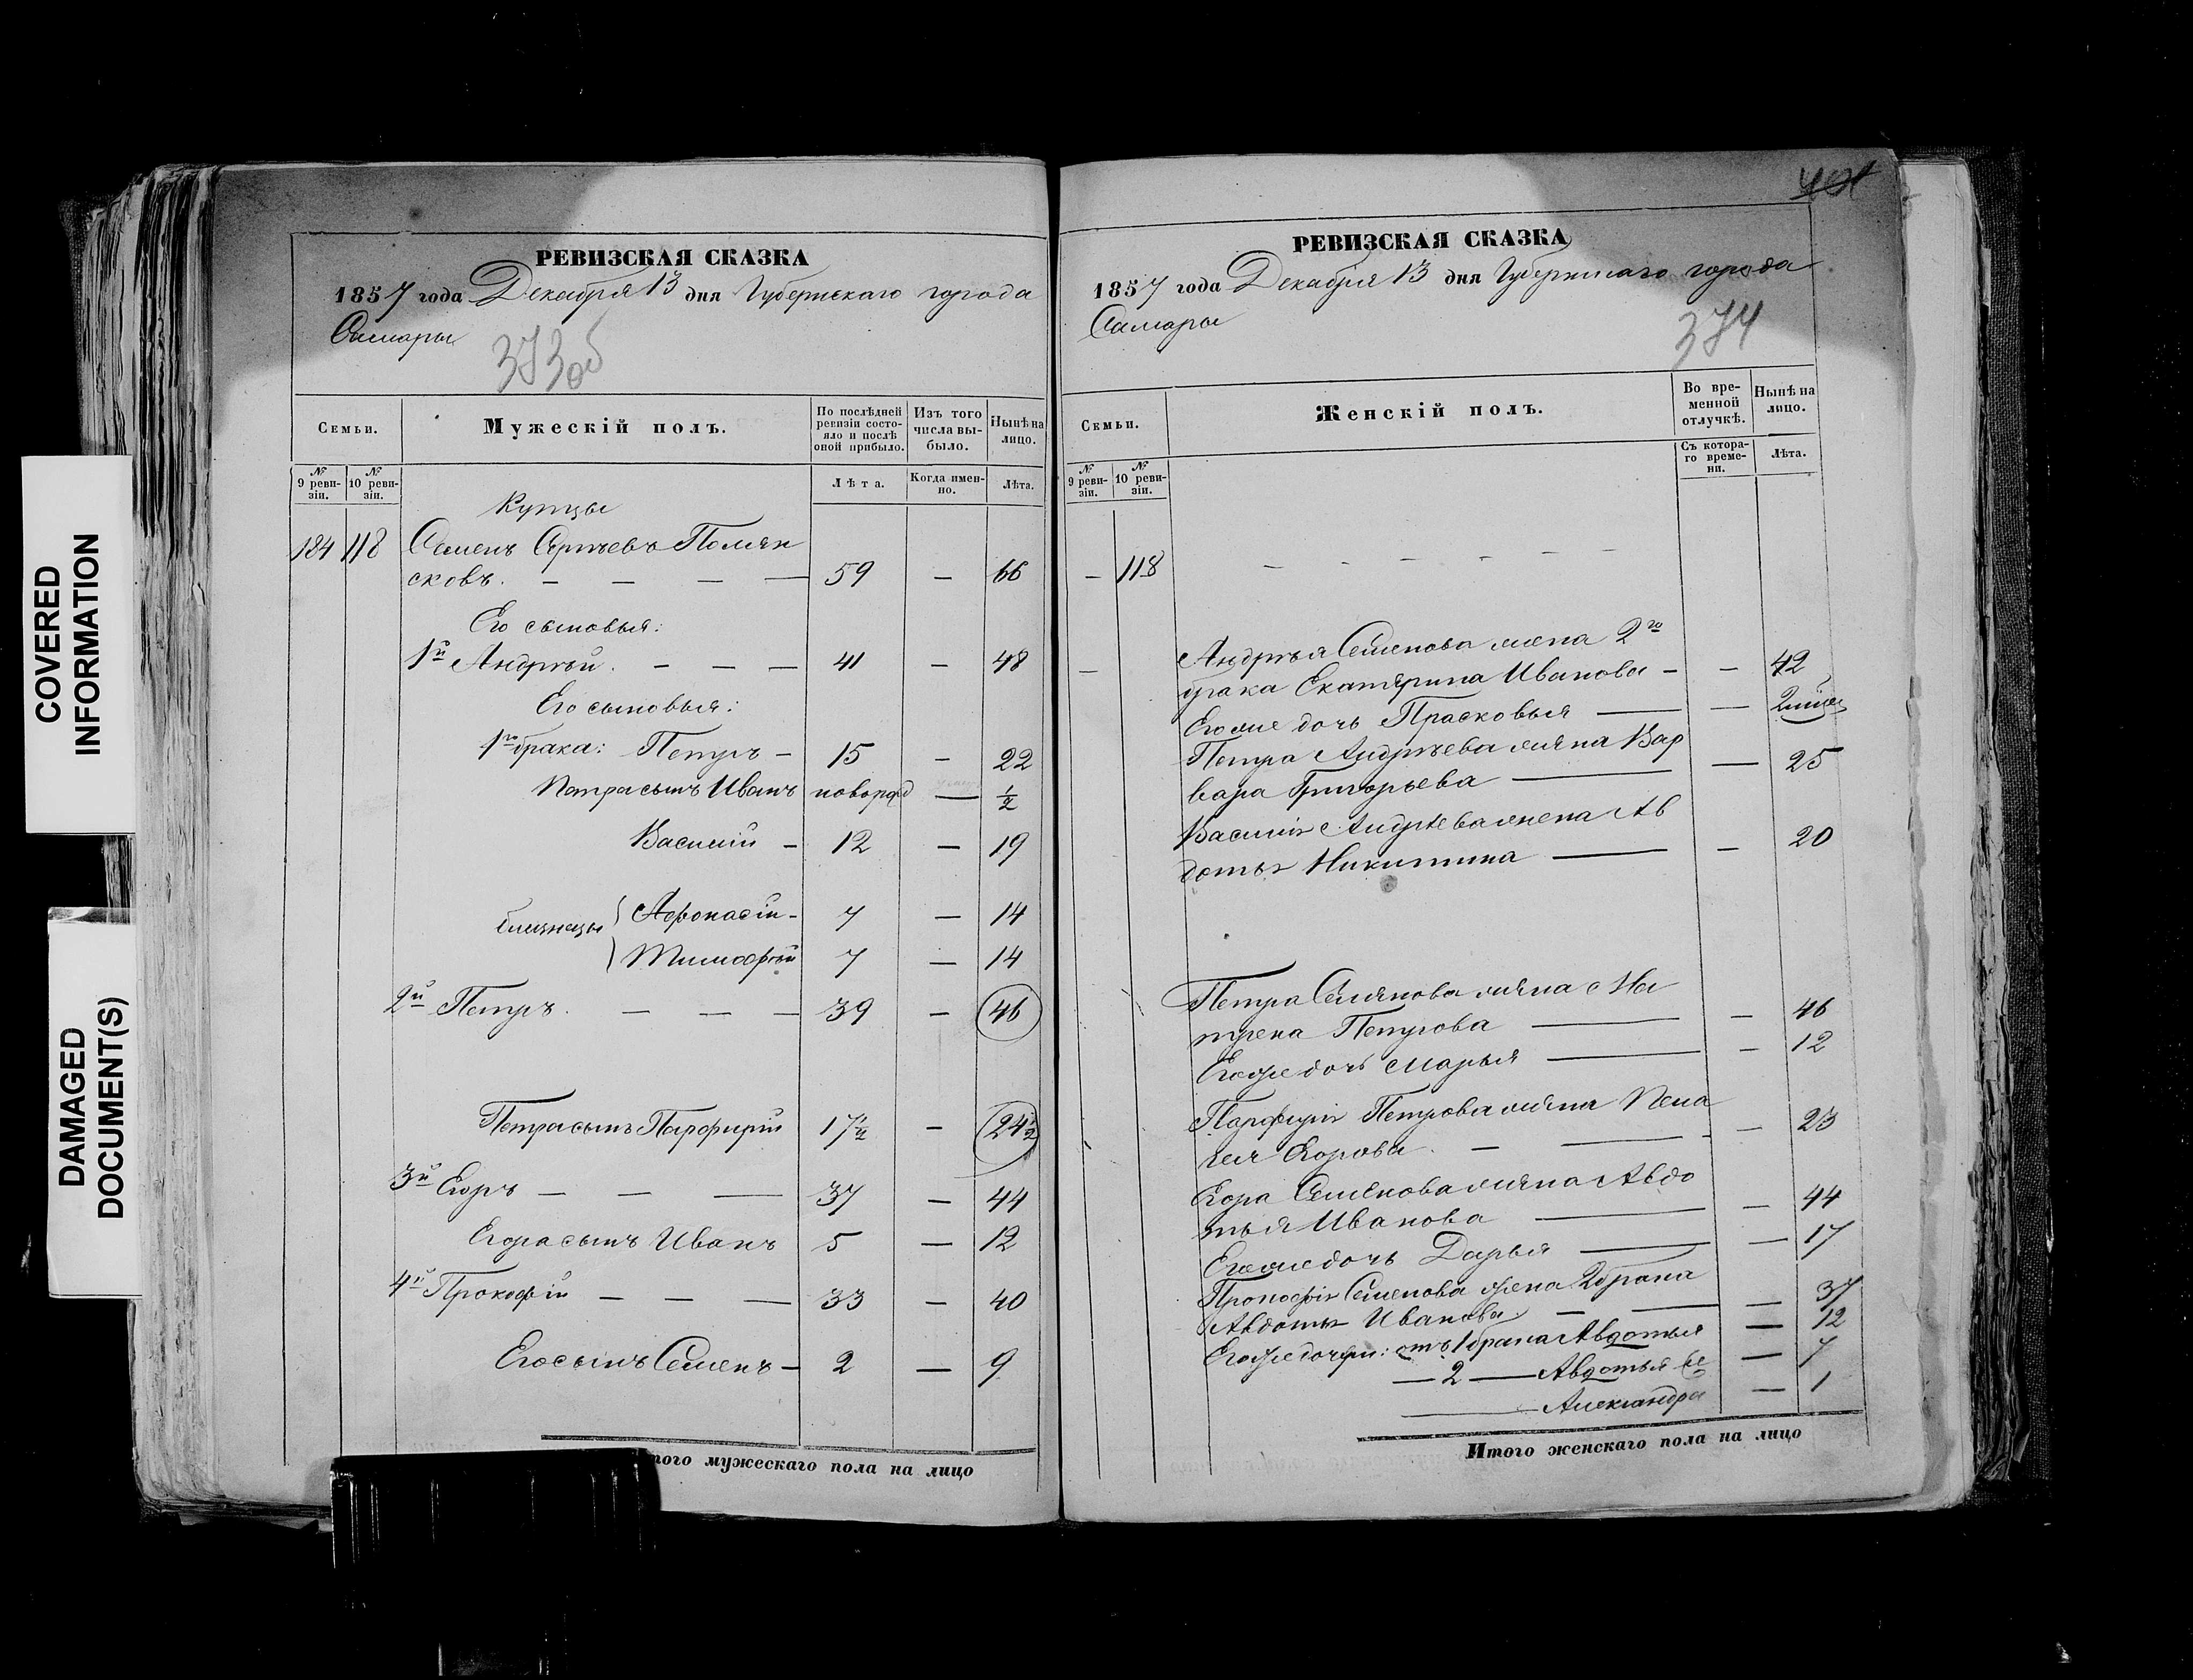 COVERED
INFORMATION
DAMAGED
DOCUMENT(S)
РЕВИЗСКАЯ СКАЗКА
1857 года Декабря 13 дня Губернскаго города
Самары
373об
Семьи.
Мужескій полъ.
По послѣдней ревизіи состояло и послѣ оной прибыло.
Изъ того числа выбыло.
Нынѣ на лицо.
№ 9 ревизіи.
№ 10 ревизіи.
Лѣта.
Когда именно.
Лѣта.
Купцы
184 118 Семенъ Сергѣевъ Полян
сковъ. — — — — 59 — 66
Его сыновья:
1й Андрѣй. — — — 41 — 48
Его сыновья:
1го брака: Петръ — 15 — 22
Петра сынъ Иванъ новорожд — 1/2
Василій — 12 — 19
близнецы { Афонасій — 7 — 14
Тимофѣй 7 — 14
2й Петръ. — — — 39 — 46
Петра сынъ Парфирій 17 1/2 — 24 1/2
3й Егоръ — — — 37 — 44
Егора сынъ Иванъ 5 — 12
4й Прокофій — — — 33 — 40
Его сынъ Семенъ — 2 — 9
того мужескаго пола на лицо
401
РЕВИЗСКАЯ СКАЗКА
1857 года Декабря 13 дня Губернскаго города
Самары
374
Семьи.
Женскій полъ.
Во временной отлучкѣ.
Нынѣ на лицо.
№ 9 ревизіи.
№ 10 ревизіи.
Съ котораго времени.
Лѣта.
— 118 — — — — —
— Андрѣя Семенова жена 2го
брака Екатерина Иванова — — 42
Его же дочь Прасковья — —
Петра Андрѣева жена Вар
вара Григорьева — — 25
Василія Андрѣева жена Ав
дотья Никитина — — 20
Петра Семенова жена Ма
трена Петрова — — 46
Его же дочь Марья — — 12
Парфирія Петрова жена Пела
гея Егорова. — — — 23
Егора Семенова жена Авдо
тья Иванова — — 44
Его же дочь Дарья — — 17
Прокофія Семенова жена 2 брака
Авдотья Иванова. — — — 37
Его же дочери: отъ 1 брака Авдотья — 12
— 2 — Авдотья же — 7
— Александра — 1
Итого женскаго пола на лицо